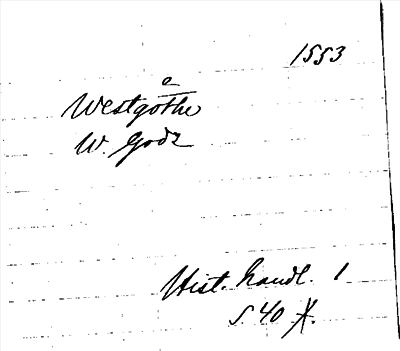 1553
a
Westgöthe
W. Godz
Hist. handl. 1
s. 40 X.